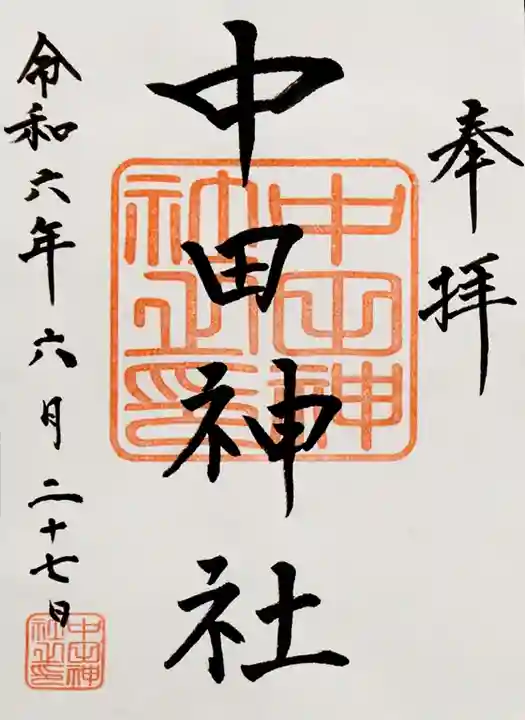 奉拝
中田神社
令和六年六月二十七日
中田神社之印
中田神社之印